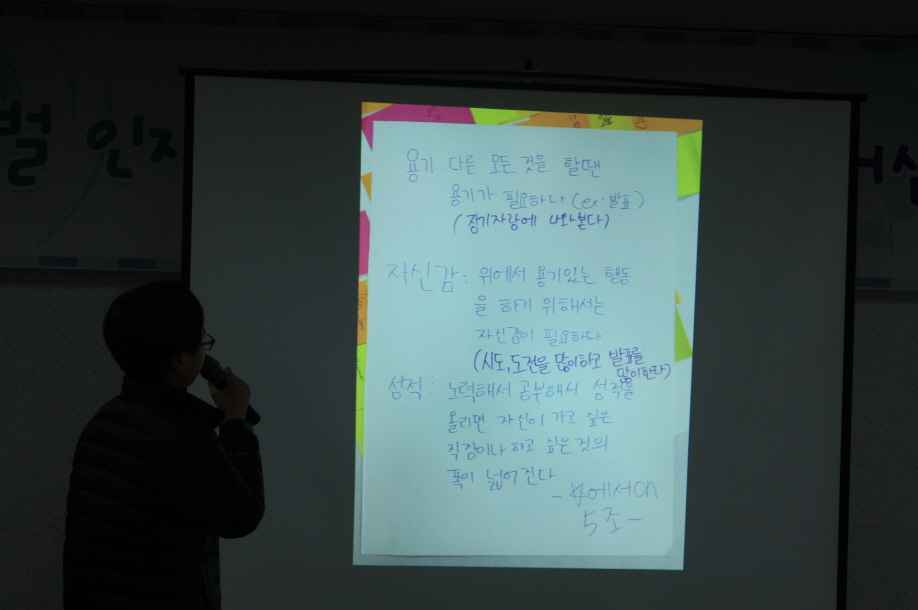 벌 인지
용기 다른 모든 것을 할땐
용기가 필요하나 (ex·발표)
(장기자랑에 나와본다)
자신감 : 위에서 용기있는 행동
을 하기 위해서는
자신감이 필요하다
(시도, 도전을 많이하고 발표를
많이한다)
성적 : 노력해서 공부해서 성적을
올리면 자신이 가고 싶은
직장이나 하고 싶은 것의
폭이 넓어진다
에서on
5조-